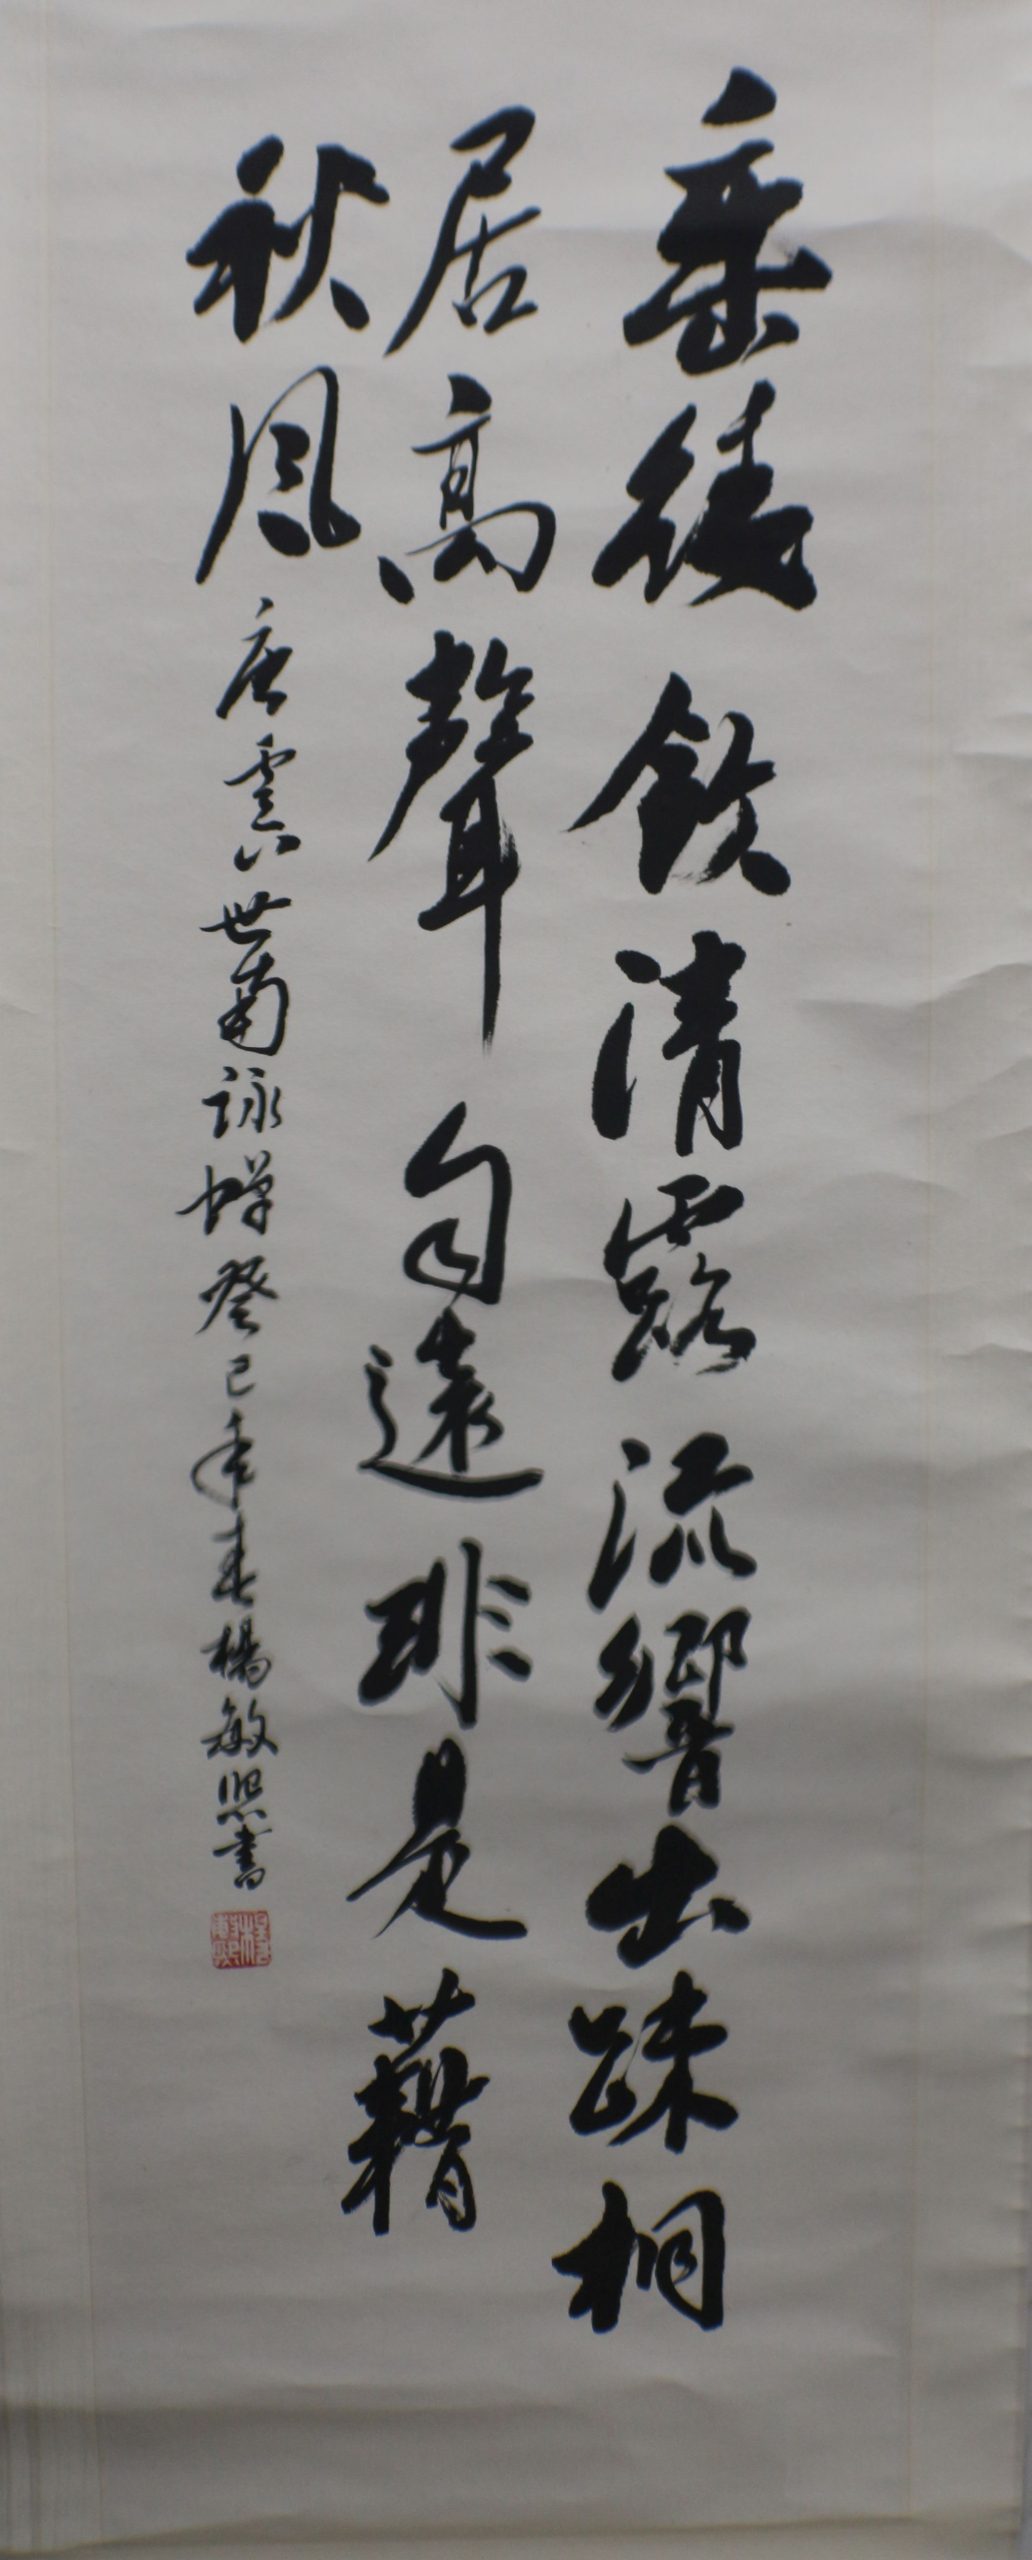 垂緌飲清露流響出疎桐
居高聲自遠非是藉
秋風
唐虞世南詠蟬癸巳年春楊敏熙書